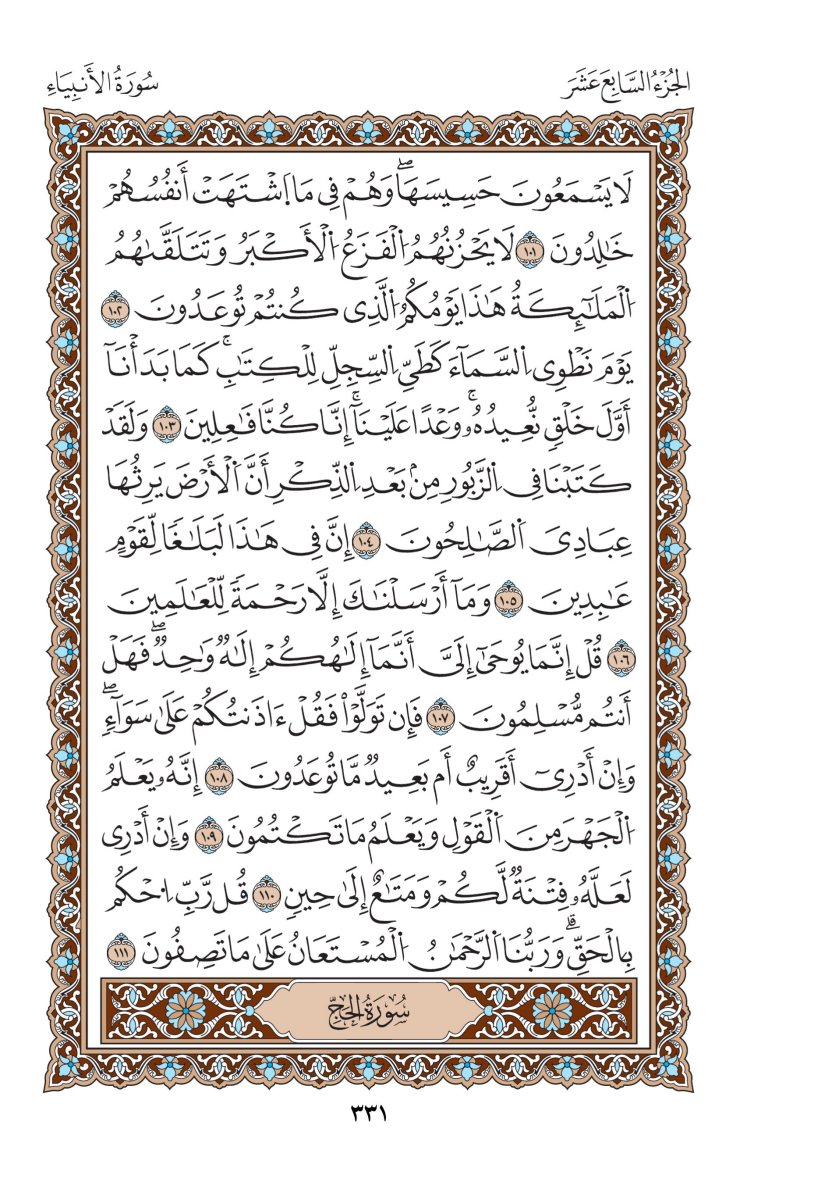 الجُزْءُ السَّابِعَ عَشَرَ
سُورَةُ الأَنبِيَاءِ
لَا يَسْمَعُونَ حَسِيسَهَاۖ وَهُمْ فِي مَا اَ۪شْتَهَتْ أَنفُسُهُمْ
خَٰلِدُونَ ١٠١ لَا يَحْزُنُهُمُ اُ۬لْفَزَعُ اُ۬لْأَكْبَرُ وَتَتَلَقَّىٰهُمُ
اُ۬لْمَلَٰٓئِكَةُ هَٰذَا يَوْمُكُمُ اُ۬لَّذِي كُنتُمْ تُوعَدُونَ ١٠٢
يَوْمَ نَطْوِي اِ۬لسَّمَآءَ كَطَيِّ اِ۬لسِّجِلِّ لِلْكِتَٰبِۚ كَمَا بَدَأْنَآ
أَوَّلَ خَلْقٖ نُّعِيدُهُۥۚ وَعْدًا عَلَيْنَآۚ إِنَّا كُنَّا فَٰعِلِينَ ١٠٣ وَلَقَدْ
كَتَبْنَا فِي اِ۬لزَّبُورِ مِنۢ بَعْدِ اِ۬لذِّكْرِ أَنَّ اَ۬لْأَرْضَ يَرِثُهَا
عِبَادِيَ اَ۬لصَّٰلِحُونَ ١٠٤ إِنَّ فِي هَٰذَا لَبَلَٰغٗا لِّقَوْمٍ
عَٰبِدِينَ ١٠٥ وَمَآ أَرْسَلْنَٰكَ إِلَّا رَحْمَةٗ لِّلْعَٰلَمِينَ
١٠٦ قُلْ إِنَّمَا يُوحَىٰٓ إِلَيَّ أَنَّمَآ إِلَٰهُكُمْ إِلَٰهٞ وَٰحِدٞۖ فَهَلْ
أَنتُم مُّسْلِمُونَ ١٠٧ فَإِن تَوَلَّوْاْ فَقُلْ ءَاذَنتُكُمْ عَلَىٰ سَوَآءٖۖ
وَإِنْ أَدْرِيٓ أَقَرِيبٌ أَم بَعِيدٞ مَّا تُوعَدُونَ ١٠٨ إِنَّهُۥ يَعْلَمُ
اُ۬لْجَهْرَ مِنَ اَ۬لْقَوْلِ وَيَعْلَمُ مَا تَكْتُمُونَ ١٠٩ وَإِنْ أَدْرِي
لَعَلَّهُۥ فِتْنَةٞ لَّكُمْ وَمَتَٰعٌ إِلَىٰ حِينٖ ١١٠ قُل رَّبِّ اِ۟حْكُم
بِالْحَقِّۗ وَرَبُّنَا اَ۬لرَّحْمَٰنُ اُ۬لْمُسْتَعَانُ عَلَىٰ مَا تَصِفُونَ ١١١
سُورَةُ الحَجِّ
٣٣١